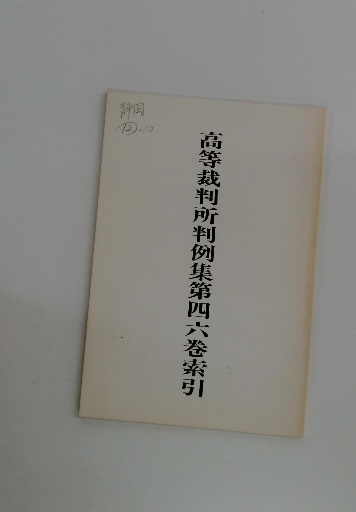 高等裁判所判例集第四六巻索引
静岡